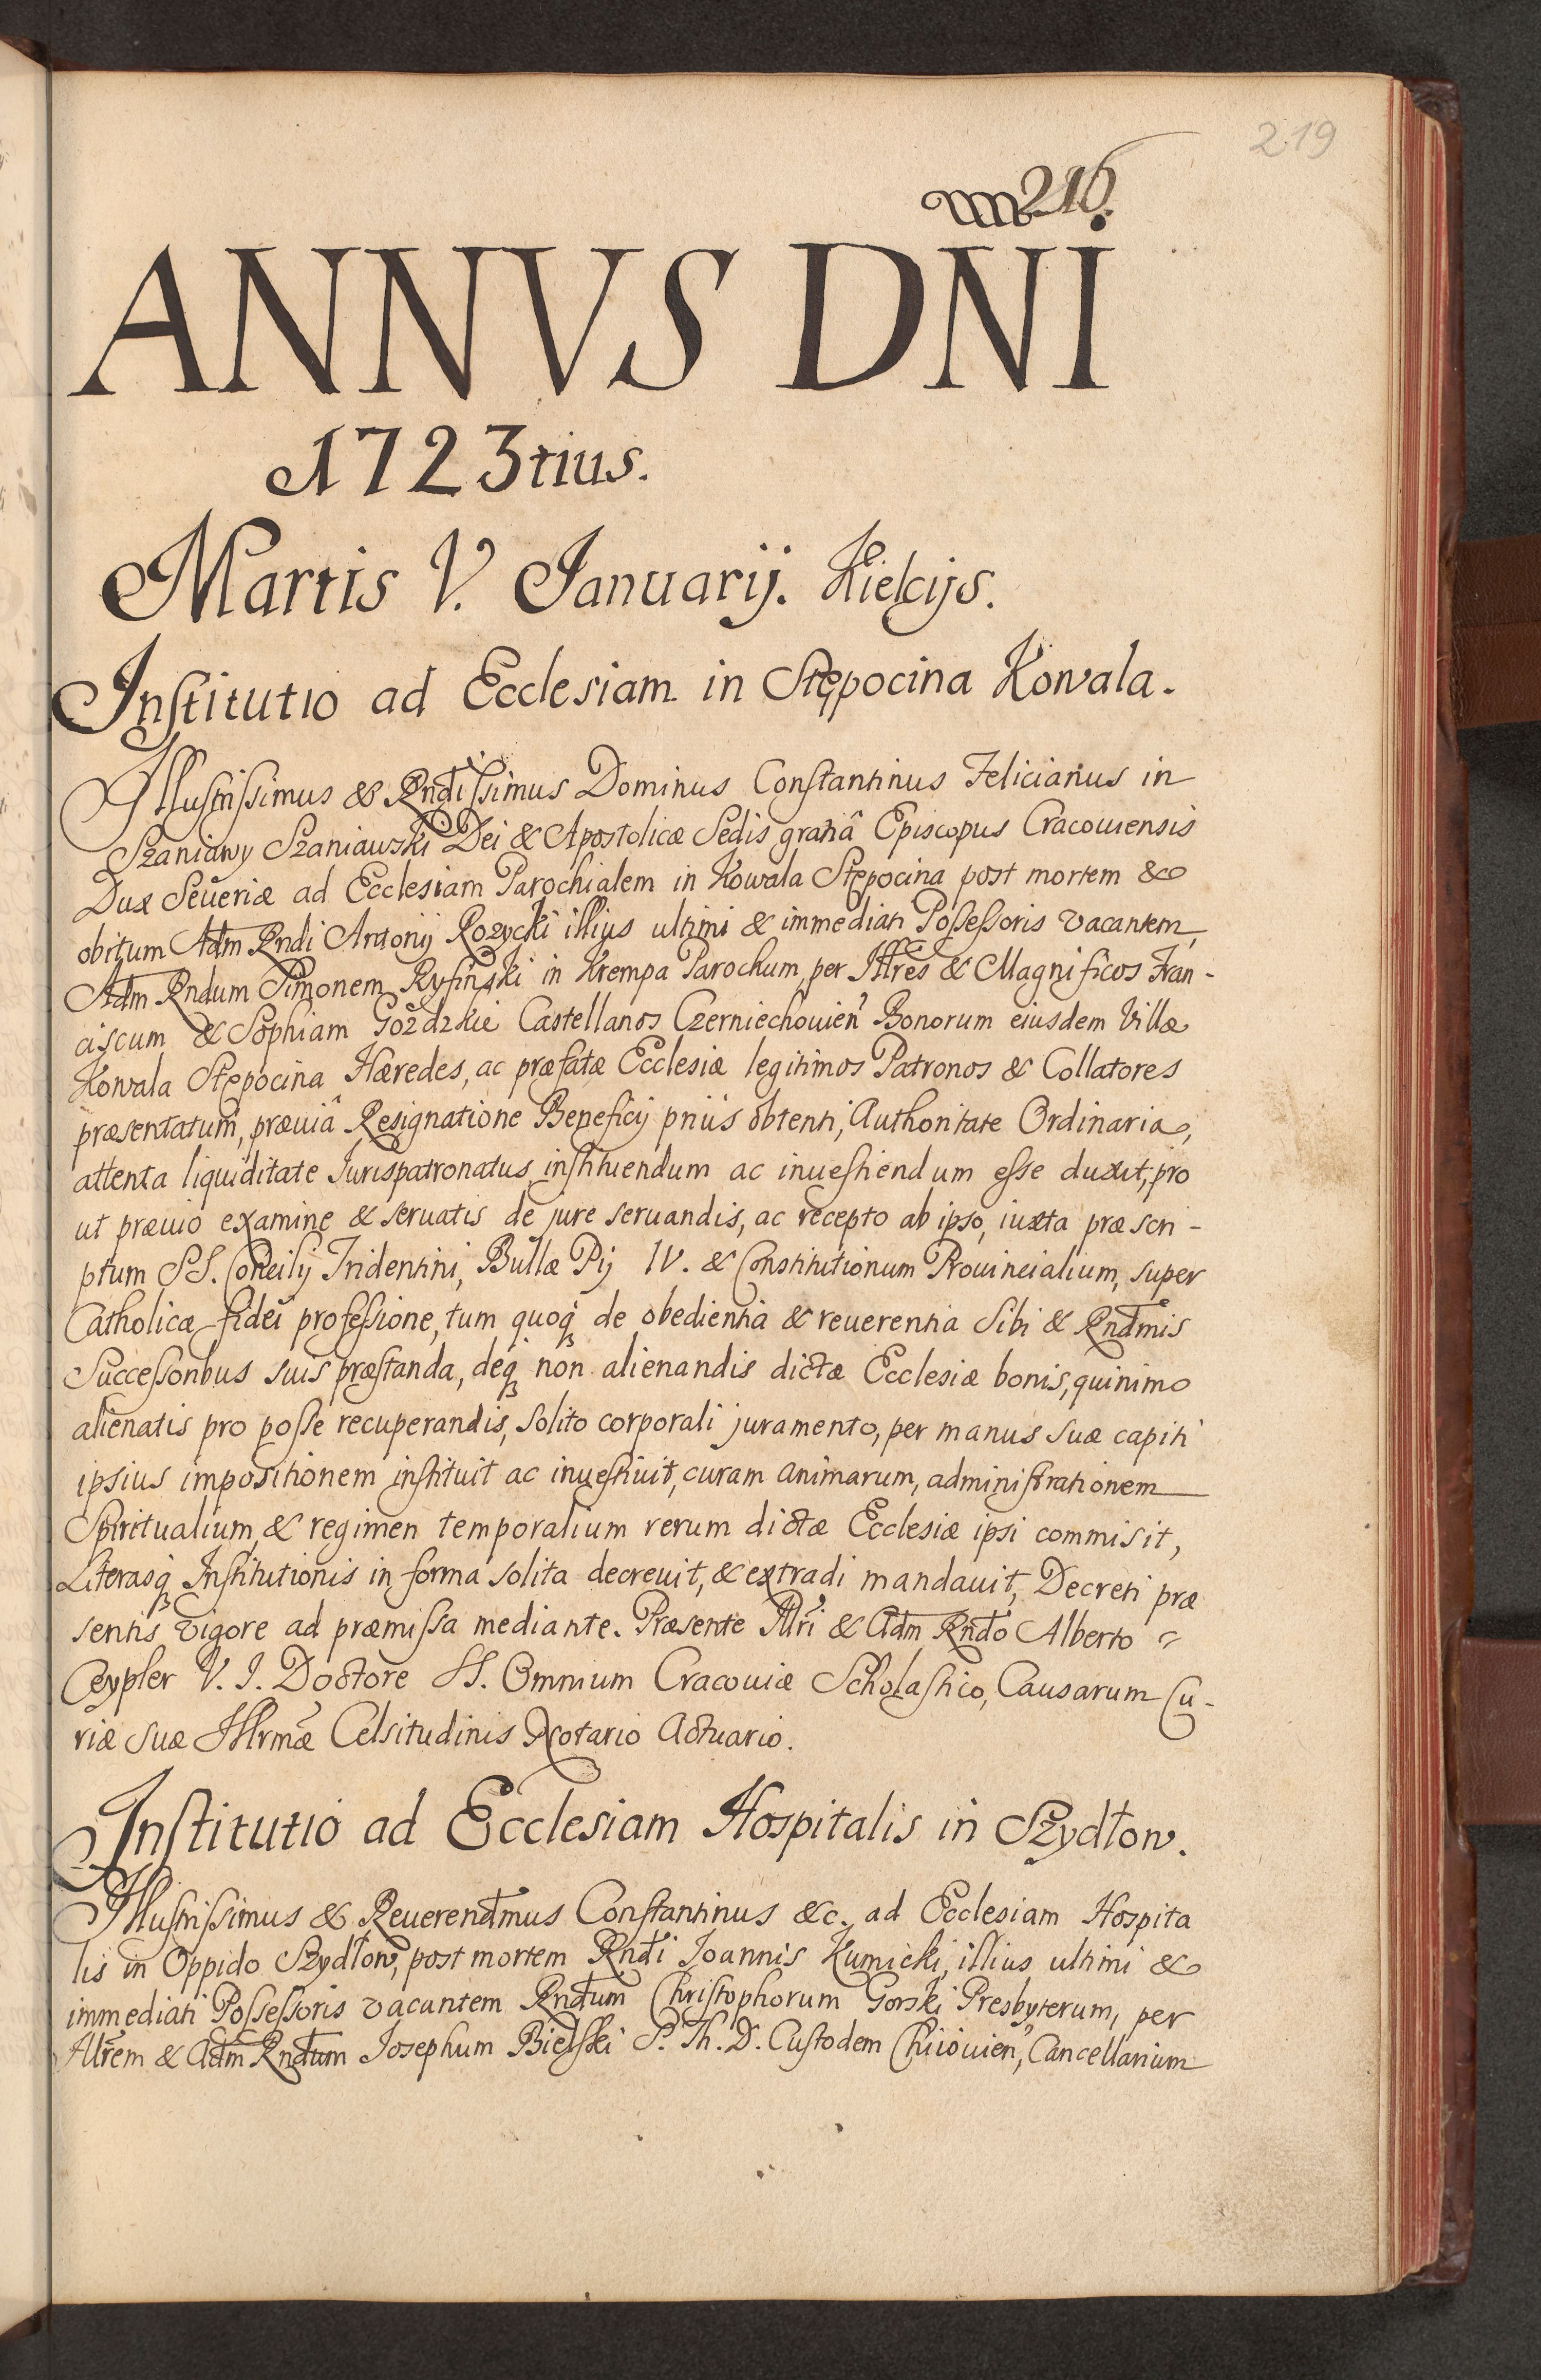 219
216.
ANNVS DNI
1723tius.
Martis V. Januarij. Kielcijs.
Institutio ad Ecclesiam in Stępocina Kowala.
Illustrissimus & Rndissimus Dominus Constantinus Felicianus in
Szaniawy Szaniawski Dei & Apostolicæ Sedis gratiâ Episcopus Cracouiensis
Dux Seueriæ ad Ecclesiam Parochialem in Kowala Stępocina post mortem &
obitum Adm Rndi Antonij Rozycki illius ultimi & immediati Possessoris vacantem,
Adm Rndum Simonem Ryfinski in Krempa Parochum, per Illres & Magnificos Fran-
ciscum & Sophiam Gozdzkie Castellanos Czerniechouien Bonorum eiusdem Villæ
Kowala Stępocina Hæredes, ac præfatæ Ecclesiæ legitimos Patronos & Collatores
præsentatum, præuiâ Resignatione Beneficij prius obtenti, Authoritate Ordinaria,
attenta liquiditate Jurispatronatus, instituendum ac inuestiendum esse duxit, pro
ut præuio examine & seruatis de jure seruandis, ac recepto ab ipso, iuxta præscri-
ptum SS. Concilij Tridentini, Bullæ Pij IV. & Constitutionum Prouincialium, super
Catholicæ fidei professione, tum quoq de obedientia & reuerentia Sibi & Rndmis
Successoribus suis præstanda, deq non alienandis dictæ Ecclesiæ bonis, quinimo
alienatis pro posse recuperandis, solito corporali juramento, per manus suæ capiti
ipsius impositionem instituit ac inuestiuit, curam animarum, administrationem
Spiritualium, & regimen temporalium rerum dictæ Ecclesiæ ipsi commisit,
Literasq Institutionis in forma solita decreuit, & extradi mandauit, Decreti præ
sentis vigore ad præmissa mediante. Præsente Illri & Adm Rndo Alberto
Ceypler V. J. Doctore SS. Omnium Cracouiæ Scholastico, Causarum Cu-
riæ Suæ Illrmæ Celsitudinis Notario Actuario.
Institutio ad Ecclesiam Hospitalis in Szydłow.
Illustrissimus & Reuerendmus Constantinus &c. ad Ecclesiam Hospita
lis in Oppido Szydłow, post mortem Rndi Joannis Kumicki, illius ultimi &
immediati Possessoris vacantem Rndum Christophorum Gorski Presbyterum, per
Illrem & Adm Rndum Josephum Bielski S. Th. D. Custodem Chiiouien, Cancellarium